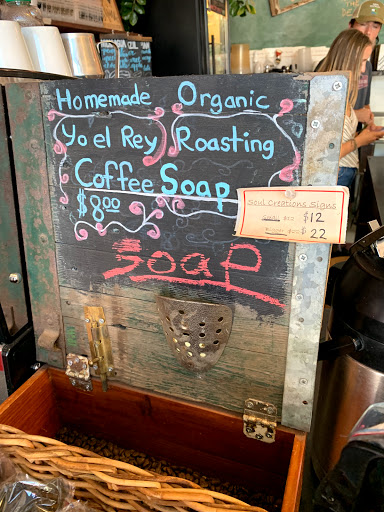 Homemade Organic
Yo el Rey Roasting
Coffee Soap
$8.00
Soul Creations Signs
$12
$22
Soap